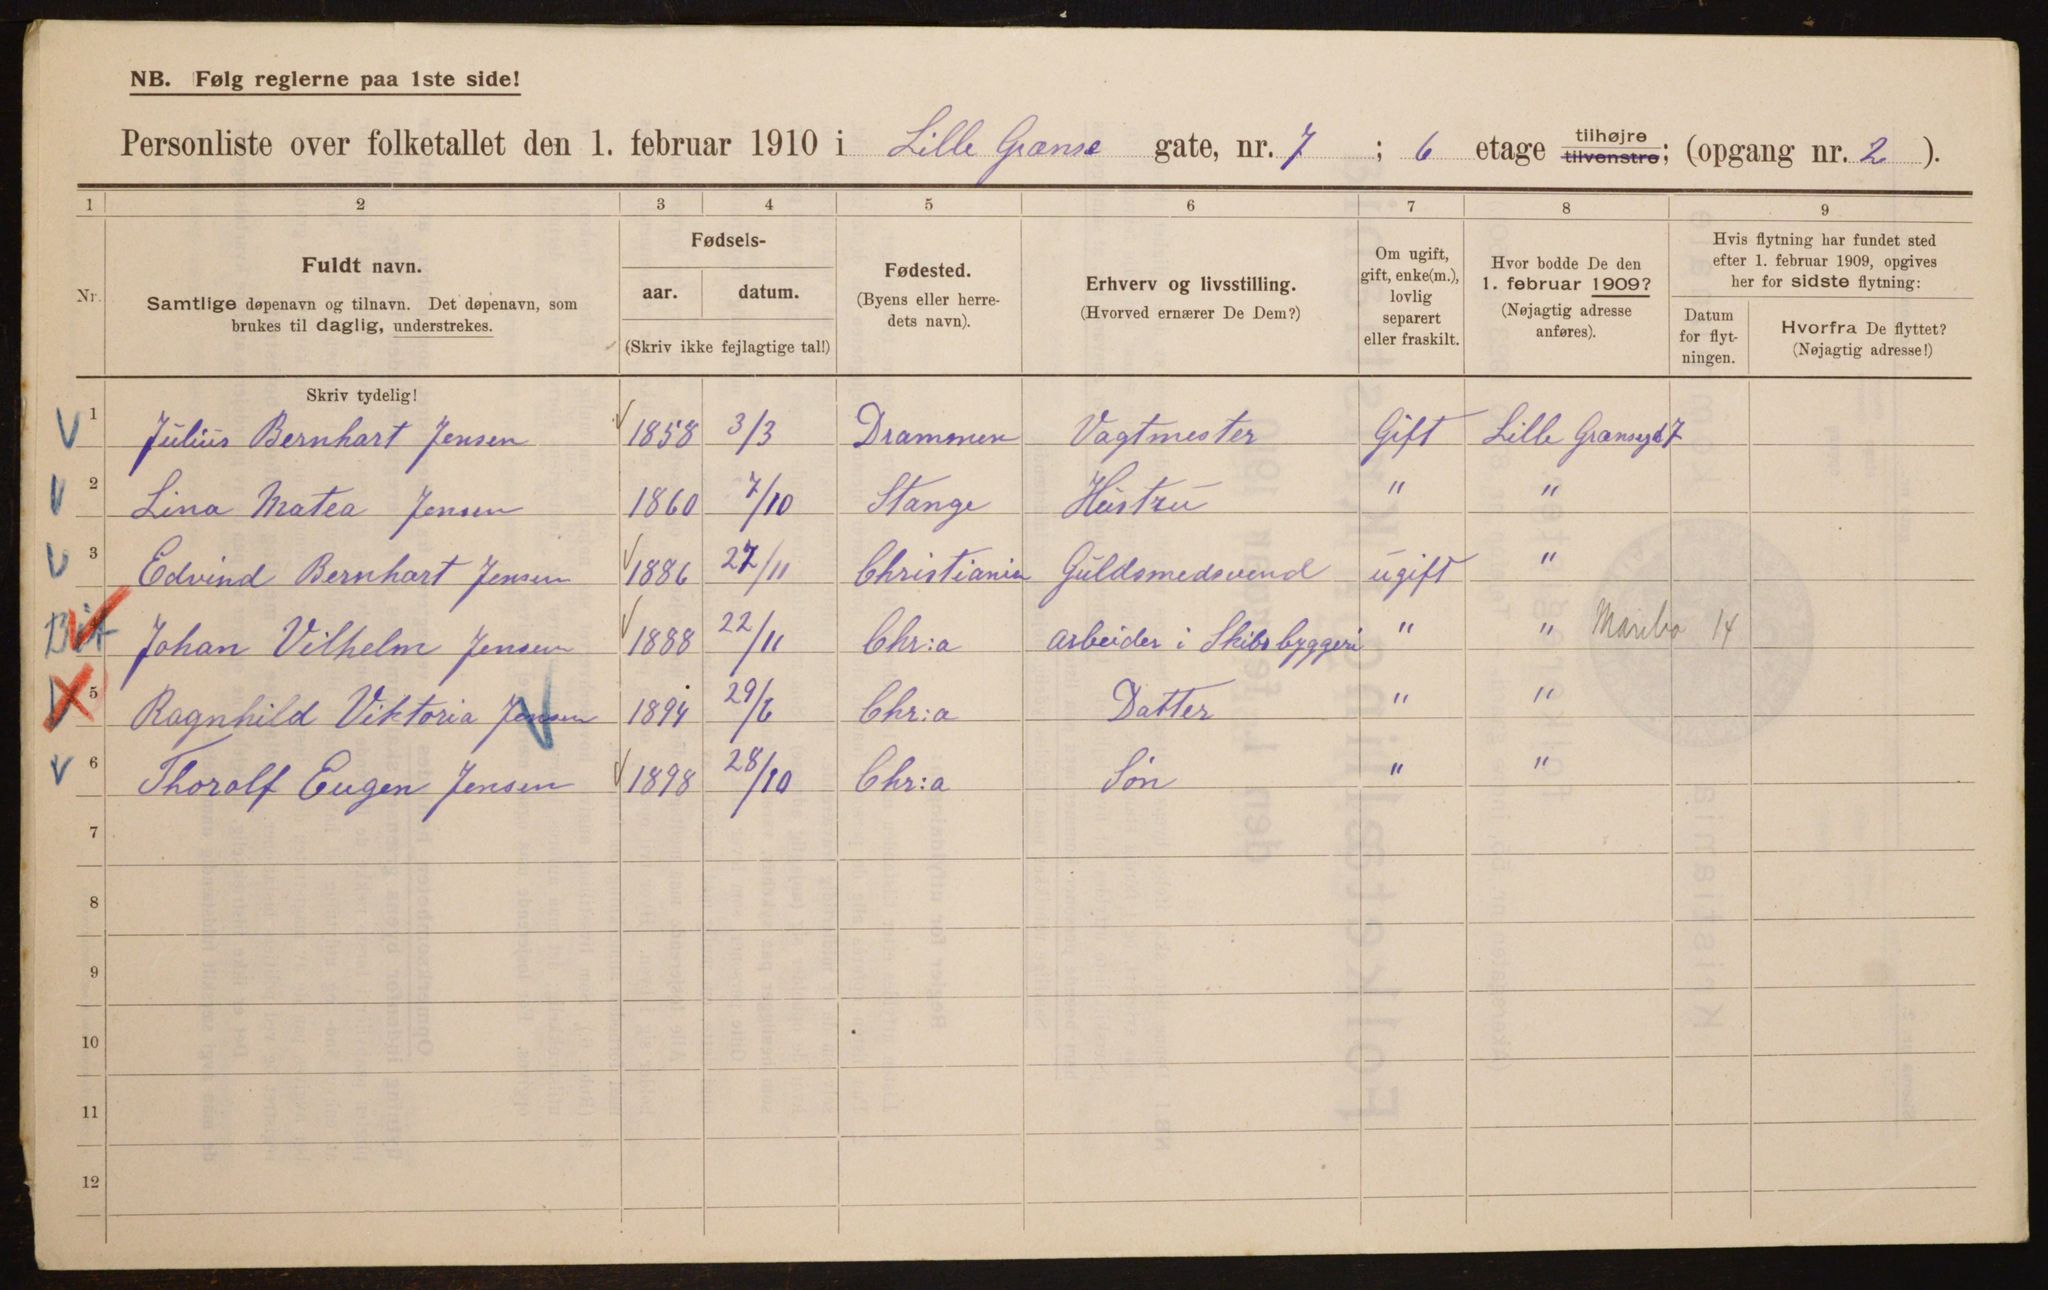 NB. Følg reglerne paa 1ste side!
Personliste over folketallet den 1. februar 1910 i Lille Grænse gate, nr. 7 ; 6 etage tilhøjre tilvenstre; (opgang nr. 2 ).
1 2 3 4 5 6 7 8 9
Nr. Fuldt navn. Samtlige døpenavn og tilnavn. Det døpenavn, som brukes til daglig, understrekes.
Fødsels- aar. datum. (Skriv ikke fejlagtige tal!)
Fødested. (Byens eller herredets navn).
Erhverv og livsstilling. (Hvorved ernærer De Dem?)
Om ugift, gift, enke(m.), lovlig separert eller fraskilt.
Hvor bodde De den 1. februar 1909? (Nøjagtig adresse anføres).
Hvis flytning har fundet sted efter 1. februar 1909, opgives her for sidste flytning:
Datum for flytningen. Hvorfra De flyttet? (Nøjagtig adresse!)
Skriv tydelig!
1 Julius Bernhart Jensen 1858 3/3 Drammen Vagtmester Gift Lille Grænsegd 7
2 Lina Matea Jensen 1860 7/10 Stange Hustru " "
3 Edvind Bernhart Jensen 1886 27/11 Christiania Guldsmedsvend ugift "
4 Johan Vilhelm Jensen 1888 22/11 Chr:a arbeider i Skibsbyggeri " " Maribo 14
5 Ragnhild Viktoria Jensen 1894 29/6 Chr:a Datter " "
6 Thorolf Eugen Jensen 1898 28/10 Chr:a Søn " "
7
8
9
10
11
12